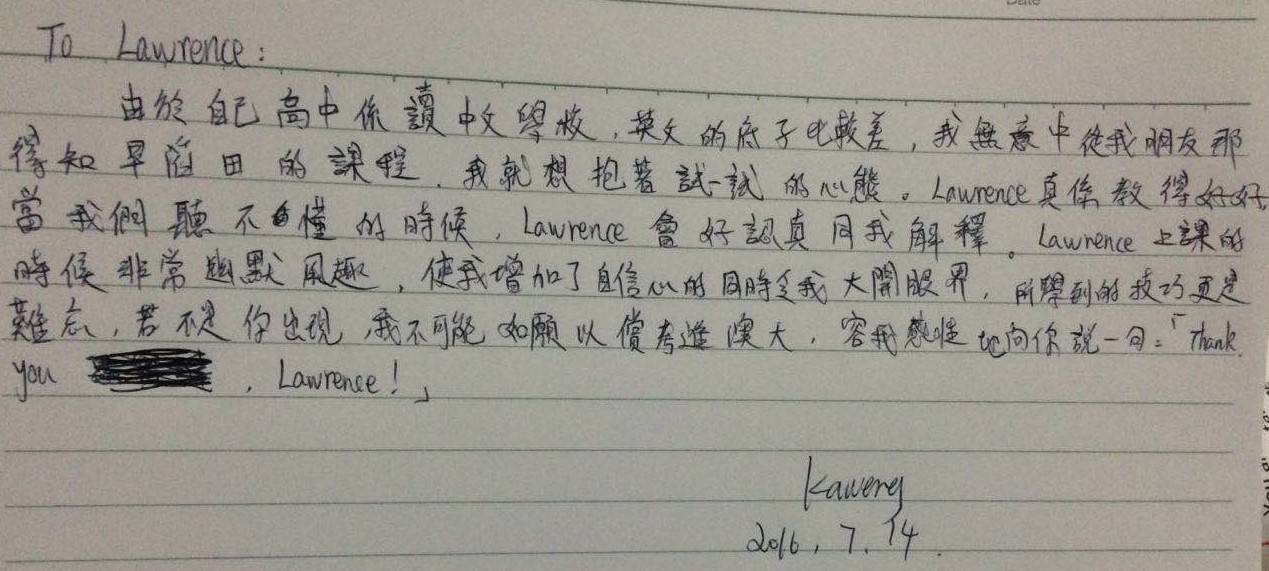 To Lawrence:
由於自己高中係讀中文學校，英文的底子比較差，我無意中從我朋友那
得知早稻田的課程，我就想抱著試一試的心態。Lawrence真係教得好好，
當我們聽不懂的時候，Lawrence會好認真同我解釋。Lawrence上課的
時候非常幽默風趣，使我增加了自信心的同時令我大開眼界，所學到的技巧更是
難忘，若不是你出現，我不可能如願以償考進澳大，容我感性地向你說一句：「Thank
you ，Lawrence！」
Kaweng
2016.7.14.